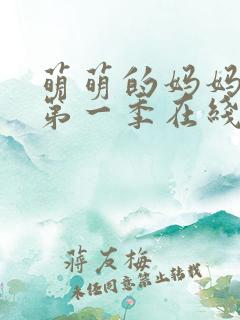 萌萌的妈妈
第一季在线
蒋友梅
未经同意禁止转载